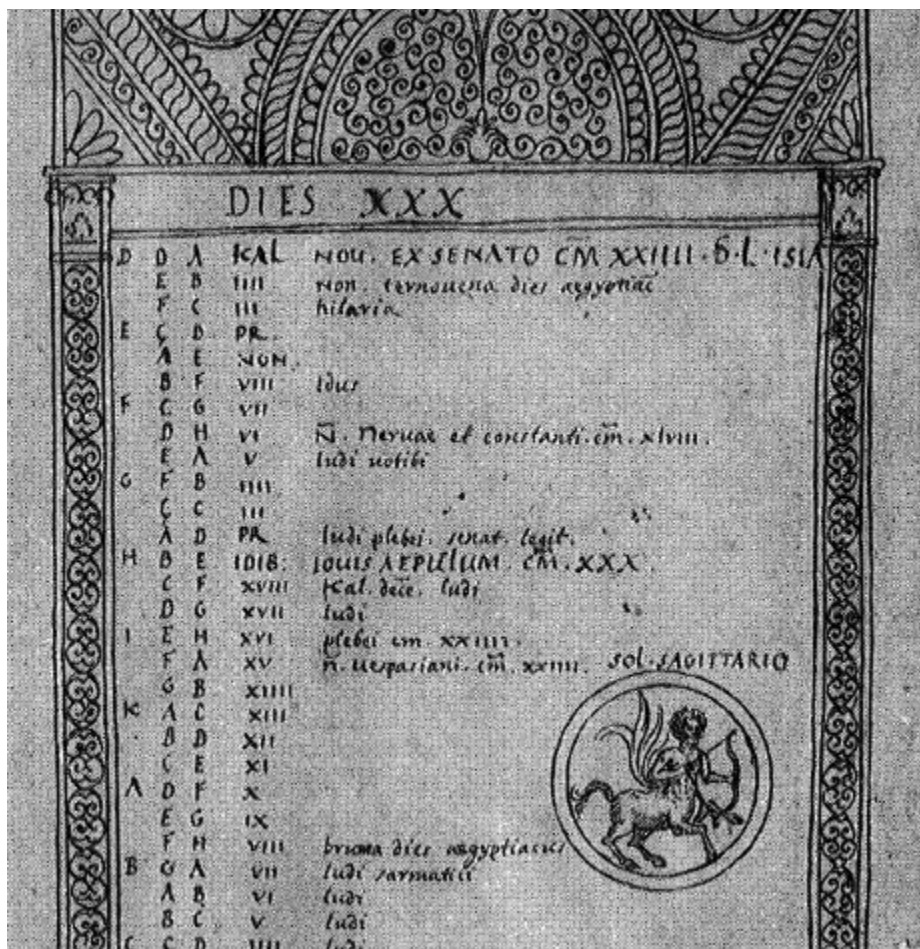 DIES XXX
D D A KAL NOU. EX SENATO CM XXIIII. D. L. ISIA
E B IIII Non. ternouena dies aegyptiac
F C III hilaria
E G D PR.
A E NON.
B F VIII Idus
F C G VII
D H VI N. Neruae et constanti. cm. xlviii.
E A V ludi uotibi
G F B IIII
G C III
A D PR ludi plebei. senat. legit.
H B E IDIB: IOUIS AEPULUM. CM. XXX.
C F XVIII Kal. dece. ludi
D G XVII ludi
I E H XVI plebei cm. xxiiii.
F A XV n. uespasiani. cm. xxiiii. SOL. SAGITTARIO
G B XIIII
K A C XIII
B D XII
C E XI
A D F X
E G IX
F H VIII bruma dies aegyptiacus
B G A VII ludi sarmatici
A B VI ludi
B C V ludi
C C D IIII ludi